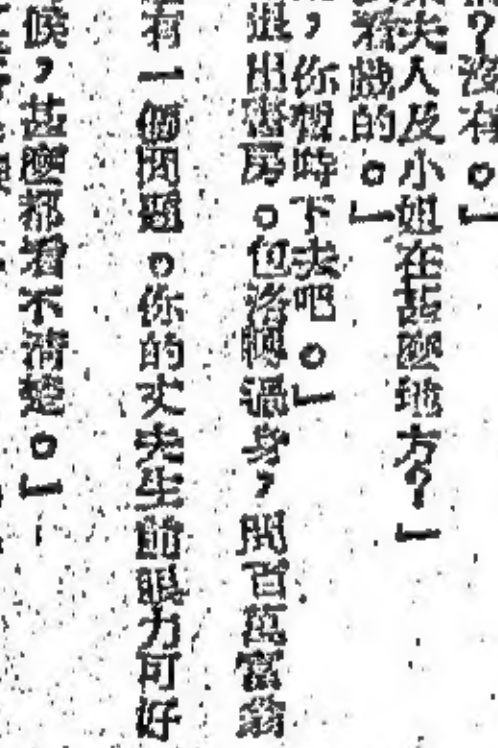 ？沒有。」
夫人及小姐在甚麼地方？」
着戲的。」
，你暫時下去吧。」
退出書房。包洛轉過身，問百萬富翁
有一個問題。你的丈夫生前眼力可好
候，甚麼都看不清楚。」